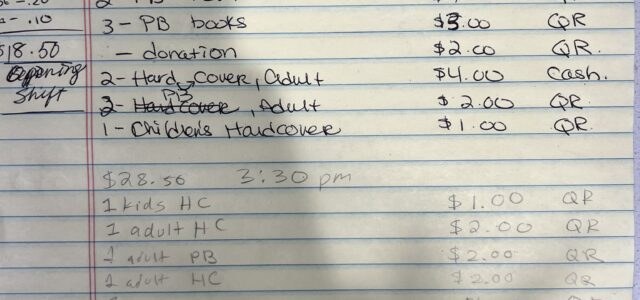 3 - PB books $3.00 QR
- donation $2.00 QR.
2 - Hard-cover, Adult $4.00 Cash.
PB
2 - Hardcover, Adult $2.00 QR.
1 - Children's Hardcover $1.00 QR.
.10
$18.50
Opening
Shift
$28.50 3:30 pm
1 kids HC $1.00 QR
1 adult HC $2.00 QR
1 adult PB $2.00 QR
1 adult HC $2.00 QR